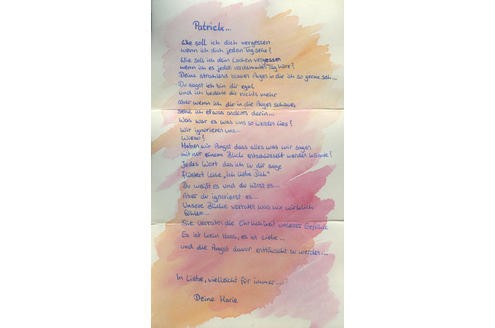 Patrick...
Wie soll ich dich vergessen
wenn ich dich jeden Tag sehe?
Wie soll ich dein Lachen vergessen
wenn ich es jeden verdammten Tag höre?
Deine strahlend blauen Augen in die ich so gerne seh...
Du sagst ich bin dir egal
und ich bedeute dir nichts mehr
aber wenn ich dir in die Augen schaue
sehe ich etwas anderes darin...
Was war es was uns so werden lies?
Wir ignorieren uns...
Wieso?
Haben wir Angst dass alles was wir sagen
mit nur einem Blick entschlüsselt werden könnte?
Jedes Wort das ich zu dir sage
flüstert leise „Ich liebe Dich"
Du weißt es und du hörst es...
Aber du ignorierst es...
Unsere Blicke verraten was wir wirklich
fühlen...
Sie verraten die Ehrlichkeit unserer Gefühle
Es ist kein Hass, es ist Liebe...
und die Angst davor enttäuscht zu werden...
In Liebe, vielleicht für immer...
Deine Marie